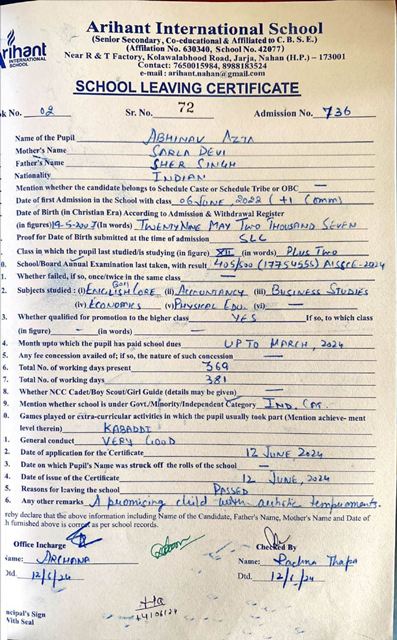 Arihant International School
(Senior Secondary, Co-educational & Affiliated to C. B. S. E.)
(Affilation No. 630340, School No. 42077)
Near R & T Factory, Kolawalabhood Road, Jarja, Nahan (H.P.) – 173001
Contact: 7650015984, 8988183524
e-mail: arihant.nahan@gmail.com
Arihant
INTERNATIONAL
SCHOOL
SCHOOL LEAVING CERTIFICATE
ok No. 02 Sr. No. 72 Admission No. 736
Name of the Pupil ABHINAV AZTA
Mother's Name SARLA DEVI
Father's Name SHER SINGH
Nationality INDIAN
Mention whether the candidate belongs to Schedule Caste or Schedule Tribe or OBC —
Date of first Admission in the School with class 06 JUNE 2022 (+1 Comm)
Date of Birth (in Christian Era) According to Admission & Withdrawal Register
(in figures) 19-5-2007 (In words) TWENTY NINE MAY TWO THOUSAND SEVEN
Proof for Date of Birth submitted at the time of admission SLC
Class in which the pupil last studied/is studying (in figure) XII (in words) PLUS TWO
0. School/Board Annual Examination last taken, with result 405/500 (17754555) AISSCE-2024
1. Whether failed, if so, once/twice in the same class —
2. Subjects studied : (i) ENGLISH CORE (ii) ACCOUNTANCY (iii) BUSINESS STUDIES
(iv) ECONOMICS (v) PHYSICAL EDU. (vi) —
3. Whether qualified for promotion to the higher class YES If so, to which class
(in figure) — (in words) —
4. Month upto which the pupil has paid school dues UP TO MARCH, 2024
5. Any fee concession availed of; if so, the nature of such concession —
6. Total No. of Working days present 369
7. Total No. of working days 381
8. Whether NCC Cadet/Boy Scout/Girl Guide (details may be given) —
9. Mention whether school is under Govt./Minority/Independent Category IND. CAT.
0. Games played or extra-curricular activities in which the pupil usually took part (Mention achieve- ment
level therein) KABADDI
1. General conduct VERY GOOD
2. Date of application for the Certificate 12 JUNE 2024
3. Date on which Pupil's Name was struck off the rolls of the school —
4. Date of issue of the Certificate 12 JUNE, 2024
5. Reasons for leaving the school PASSED
6. Any other remarks A promising child with artistic temperaments.
reby declare that the above information including Name of the Candidate, Father's Name, Mother's Name and Date of
h furnished above is correct as per school records.
Office Incharge Checked By
Name: ARCHANA Name: Padma Thapa
Dtd. 12/6/24 Dtd. 12/6/24
ncipal's Sign
With Seal